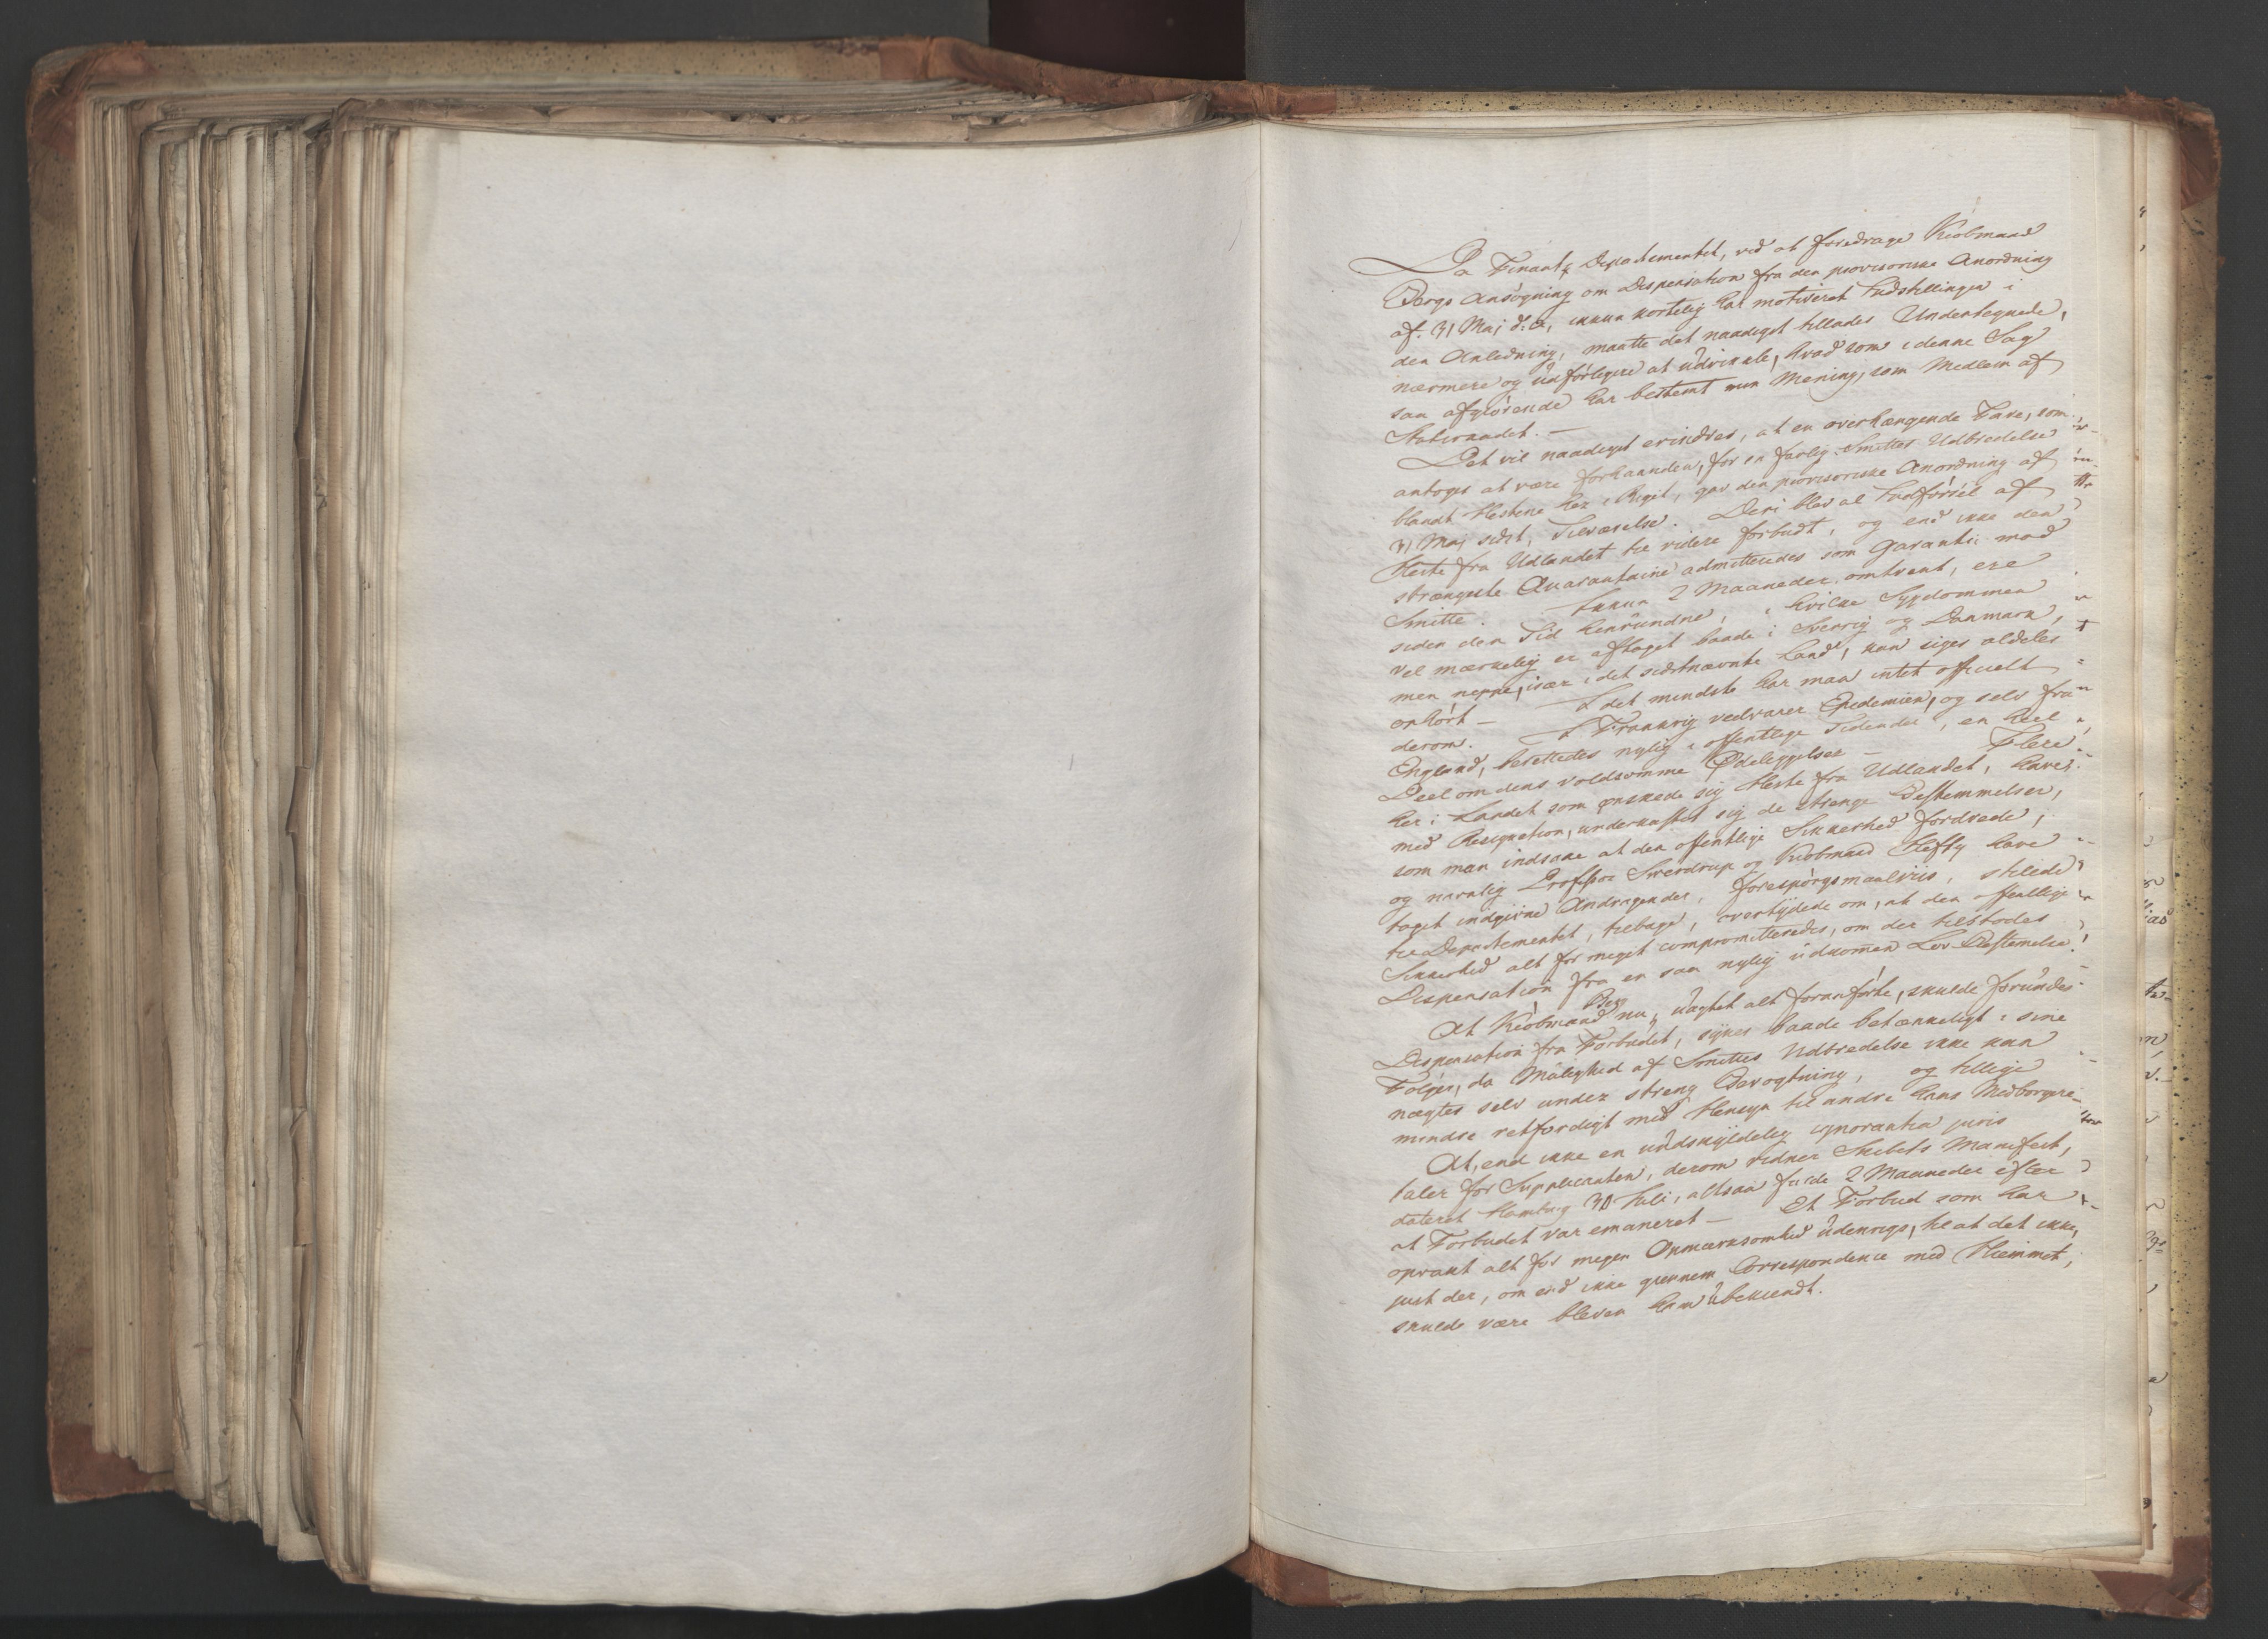 Da Finants Departementet, ved at foredrage Kiøbmand
Bergs Ansøgning om Dispensation fra den provisoriske Anordning
af 31 Maj d: A, ikkun kortelig har motiveret Indstillingen i
den Anledning, maatte det naadigst tillades Undertegnede,
nærmere og udførligere at udvikle, hvad som i denne Sag
saa afgiørende har bestemt min Mening, som Medlem af
Statsraadet. —
Det vil naadigst erindres, at en overhængende Fare, som
antoges at være forhaanden, for en farlig Smittes Udbredelse
blandt Hestene her i Riget, gav den provisoriske Anordning af
31 Maj sidst, Tilværelse. Deri blev al Indførsel af
Heste fra Udlandet til videre forbudt, og end ikke den
strængeste Quarantaine admitteredes som Garantie mod
Smitte. Ikkun 2 Maaneder omtrent, ere
siden den Tid henrundne, i hvilke Sygdommen
vel mærkelig er aftaget baade i Sverrig og Danmark,
men neppe, især i det sidstnævnte Land, kan siges aldeles
ophørt — I det mindste har man intet officielt
derom. I Frankrig vedvarer Epidemien, og selv fra
England, berettedes nylig i offentlige Tidender, en heel
Deel om dens voldsomme Ødeleggelser — Flere
her i Landet som ønskede sig Heste fra Udlandet, have,
med Resignation, underkastet sig de strenge Bestemmelser,
som man indsaae at den offentlige Sikkerhed fordrede,
og navnlig Professor Sverdrup og Kiøbmand Hefty have
taget indgivne Andragender, forespørgsmaalviis, stilede
til Departementet, tilbage, overtydede om, at den offentlige
Sikkerhed alt for meget compromitteredes, om der tilstodes
Dispensation fra en saa nylig udkommen Lov-Bestemelse.
At Kiøbmand Berg nu, uagtet alt foranførte, skulde forundes
Dispensation fra Forbudet, synes baade betænkeligt i sine
Følger, da Mulighed af Smittes Udbredelse ikke kan
nægtes selv under streng Bevogtning, og tillige
mindre retfærdigt med Hensyn til andre hans Medborgere
At, end ikke en undskyldelig ignorantia juris
taler for Supplicanten, derom vidner Skibets Manifest,
dateret Hamburg 30 Juli, altsaa fulde 2 Maaneder efter
at Forbudet var emaneret — Et Forbud som har
opvakt alt for megen Opmærksomhed udenrigs, til at det ikke,
just der, om end ikke giennem Correspondence med Hiemmet,
skulde være bleven ham ubekiendt.